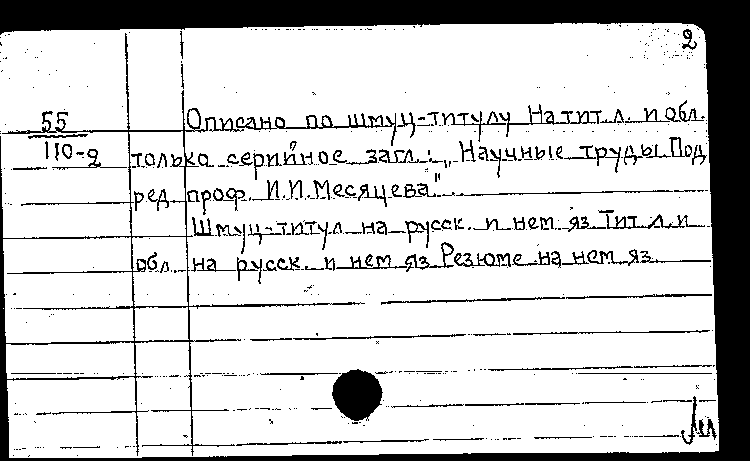 2
55
110-2
Описано по шмуц-титулу На тит. л. и обл.
только серийное загл.: „Научные труды. Под
ред. проф. И.И. Месяцева".
Шмуц-титул на русск. и нем яз. Тит. л. и
обл. на русск. и нем яз. Резюме на нем яз.